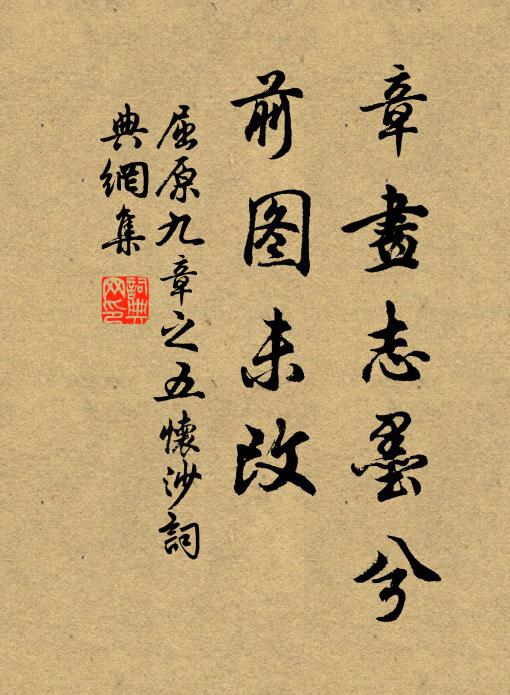 章畫志墨兮
前图未改
屈原九章之五懷沙詞
典網集
詞典网印